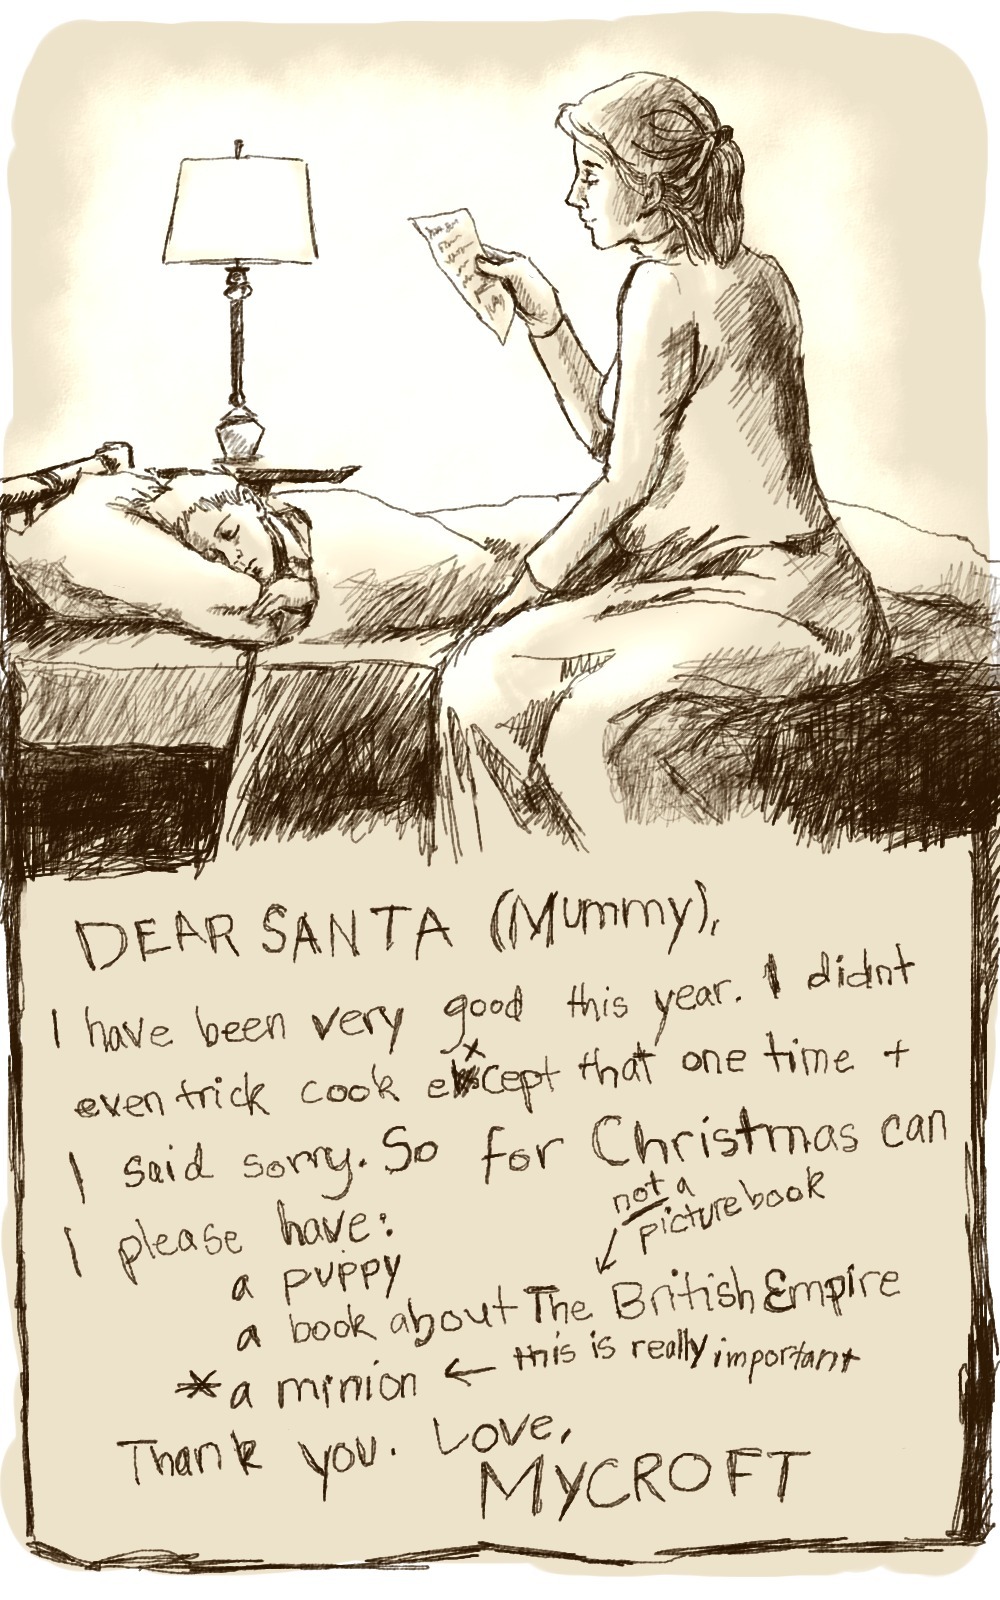 DEAR SANTA (Mummy),
I have been very good this year. I didnt
even trick cook except that one time +
I said sorry. So for Christmas can
I please have:
not a
picture book
a puppy
a book about The British Empire
* a minion ← this is really important
Thank you. Love,
MYCROFT